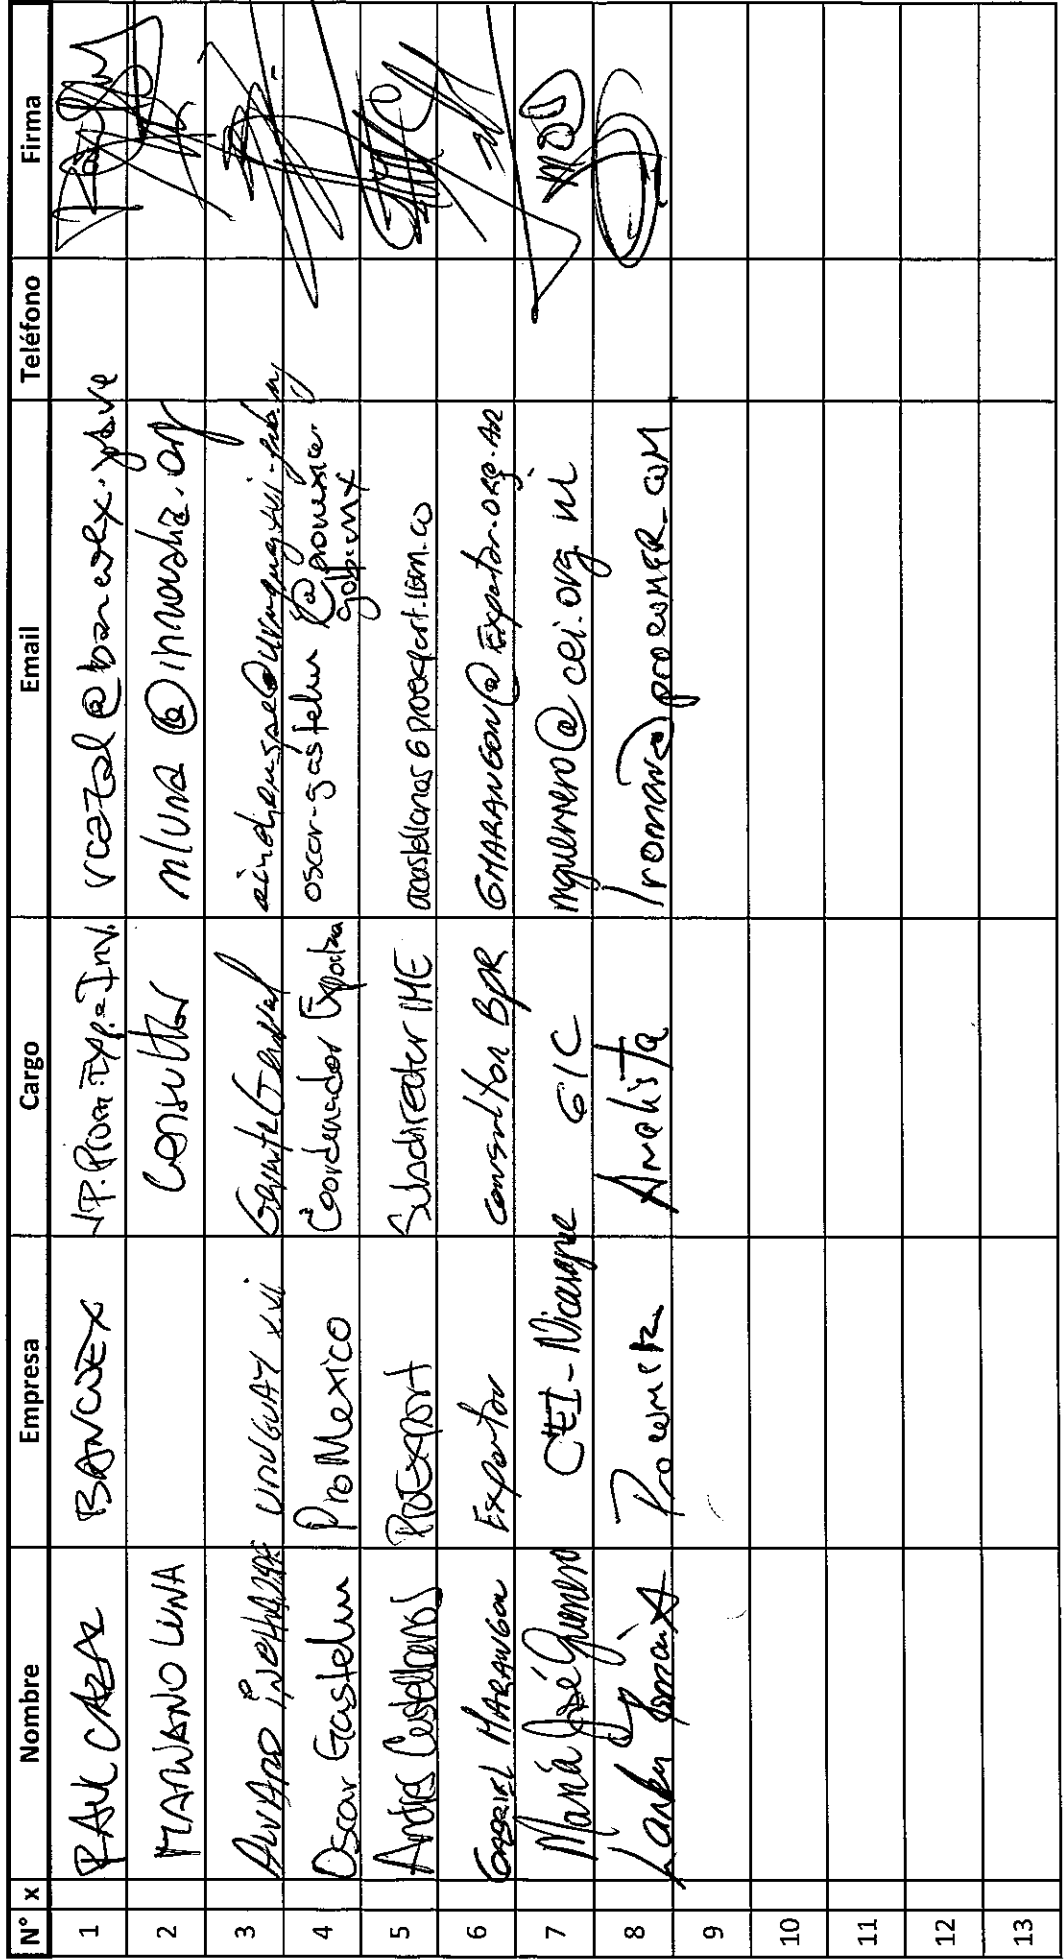 N° x Nombre Empresa Cargo Email Teléfono Firma
1 RAUL CAZAL BANCOEX V.P. Prom. Exp. e Inv. rcazal@bancoex.gob.ve
2 MARIANO LUNA Consultor mluna@innovahia.org
3 ALVARO INCHAUSPE URUGUAY XXI Gerente General
4 Oscar Gastelum ProMexico Coordenador oscar.gastelum@promexico.
gob.mx
5 Andres Castellanos ProExport Subdirector IME acastellanos@proexport.com.co
6 GABRIEL MARANGON Exportar Consultor BPR GMARANGON@Exportar.org.AR
7 María José Guerrero CEI-Nicaragua GIC mguerrero@cei.org.ni
8 Procomer Analista lromano@procomer.com
9
10
11
12
13